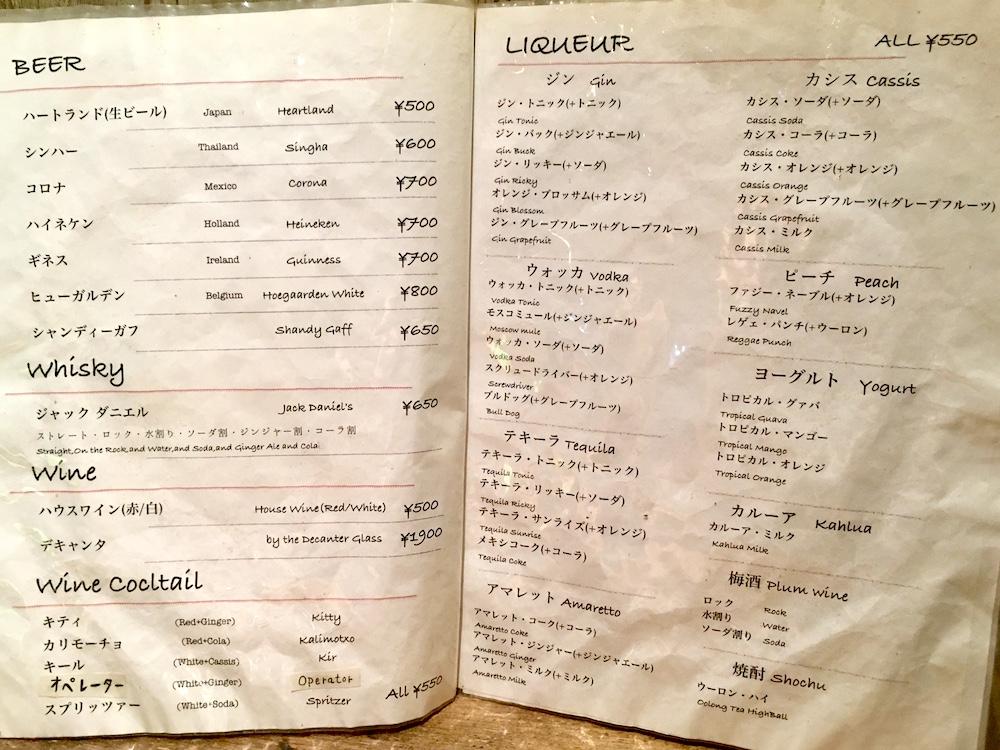 BEER
ハートランド(生ビール) Japan Heartland ¥500
シンハー Thailand Singha ¥600
コロナ Mexico Corona ¥700
ハイネケン Holland Heineken ¥700
ギネス Ireland Guinness ¥700
ヒューガルデン Belgium Hoegaarden White ¥800
シャンディーガフ Shandy Gaff ¥650
Whisky
ジャック ダニエル Jack Daniel's ¥650
ストレート・ロック・水割り・ソーダ割・ジンジャー割・コーラ割
Straight,On the Rock,and Water,and Soda,and Ginger Ale and Cola
Wine
ハウスワイン(赤/白) House Wine(Red/White) ¥500
デキャンタ by the Decanter Glass ¥1900
Wine Cocltail
キティ (Red+Ginger) Kitty
カリモーチョ (Red+Cola) Kalimotxo
キール (White+Cassis) Kir
オペレーター (White+Ginger) Operator
スプリッツァー (White+Soda) Spritzer All ¥550
LIQUEUR ALL ¥550
ジン Gin
ジン・トニック(+トニック)
Gin Tonic
ジン・バック(+ジンジャエール)
Gin Buck
ジン・リッキー(+ソーダ)
Gin Ricky
オレンジ・ブロッサム(+オレンジ)
Gin Blossom
ジン・グレープフルーツ(+グレープフルーツ)
Gin Grapefruit
ウォッカ Vodka
ウォッカ・トニック(+トニック)
Vodka Tonic
モスコミュール(+ジンジャエール)
Moscow mule
ウォッカ・ソーダ(+ソーダ)
Vodka Soda
スクリュードライバー(+オレンジ)
Screwdriver
ブルドッグ(+グレープフルーツ)
Bull Dog
テキーラ Tequila
テキーラ・トニック(+トニック)
Tequila Tonic
テキーラ・リッキー(+ソーダ)
Tequila Ricky
テキーラ・サンライズ(+オレンジ)
Tequila Sunrise
メキシコーク(+コーラ)
Tequila Coke
アマレット Amaretto
アマレット・コーク(+コーラ)
Amaretto Coke
アマレット・ジンジャー(+ジンジャエール)
Amaretto Ginger
アマレット・ミルク(+ミルク)
Amaretto Milk
カシス Cassis
カシス・ソーダ(+ソーダ)
Cassis Soda
カシス・コーラ(+コーラ)
Cassis Coke
カシス・オレンジ(+オレンジ)
Cassis Orange
カシス・グレープフルーツ(+グレープフルーツ)
Cassis Grapefruit
カシス・ミルク
Cassis Milk
ピーチ Peach
ファジー・ネーブル(+オレンジ)
Fuzzy Navel
レゲェ・パンチ(+ウーロン)
Reggae Punch
ヨーグルト Yogurt
トロピカル・グァバ
Tropical Guava
トロピカル・マンゴー
Tropical Mango
トロピカル・オレンジ
Tropical Orange
カルーア Kahlua
カルーア・ミルク
Kahlua Milk
梅酒 Plum Wine
ロック Rock
水割り Water
ソーダ割り Soda
焼酎 Shochu
ウーロン・ハイ
Oolong Tea HighBall